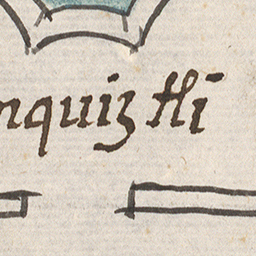 nquiz tli